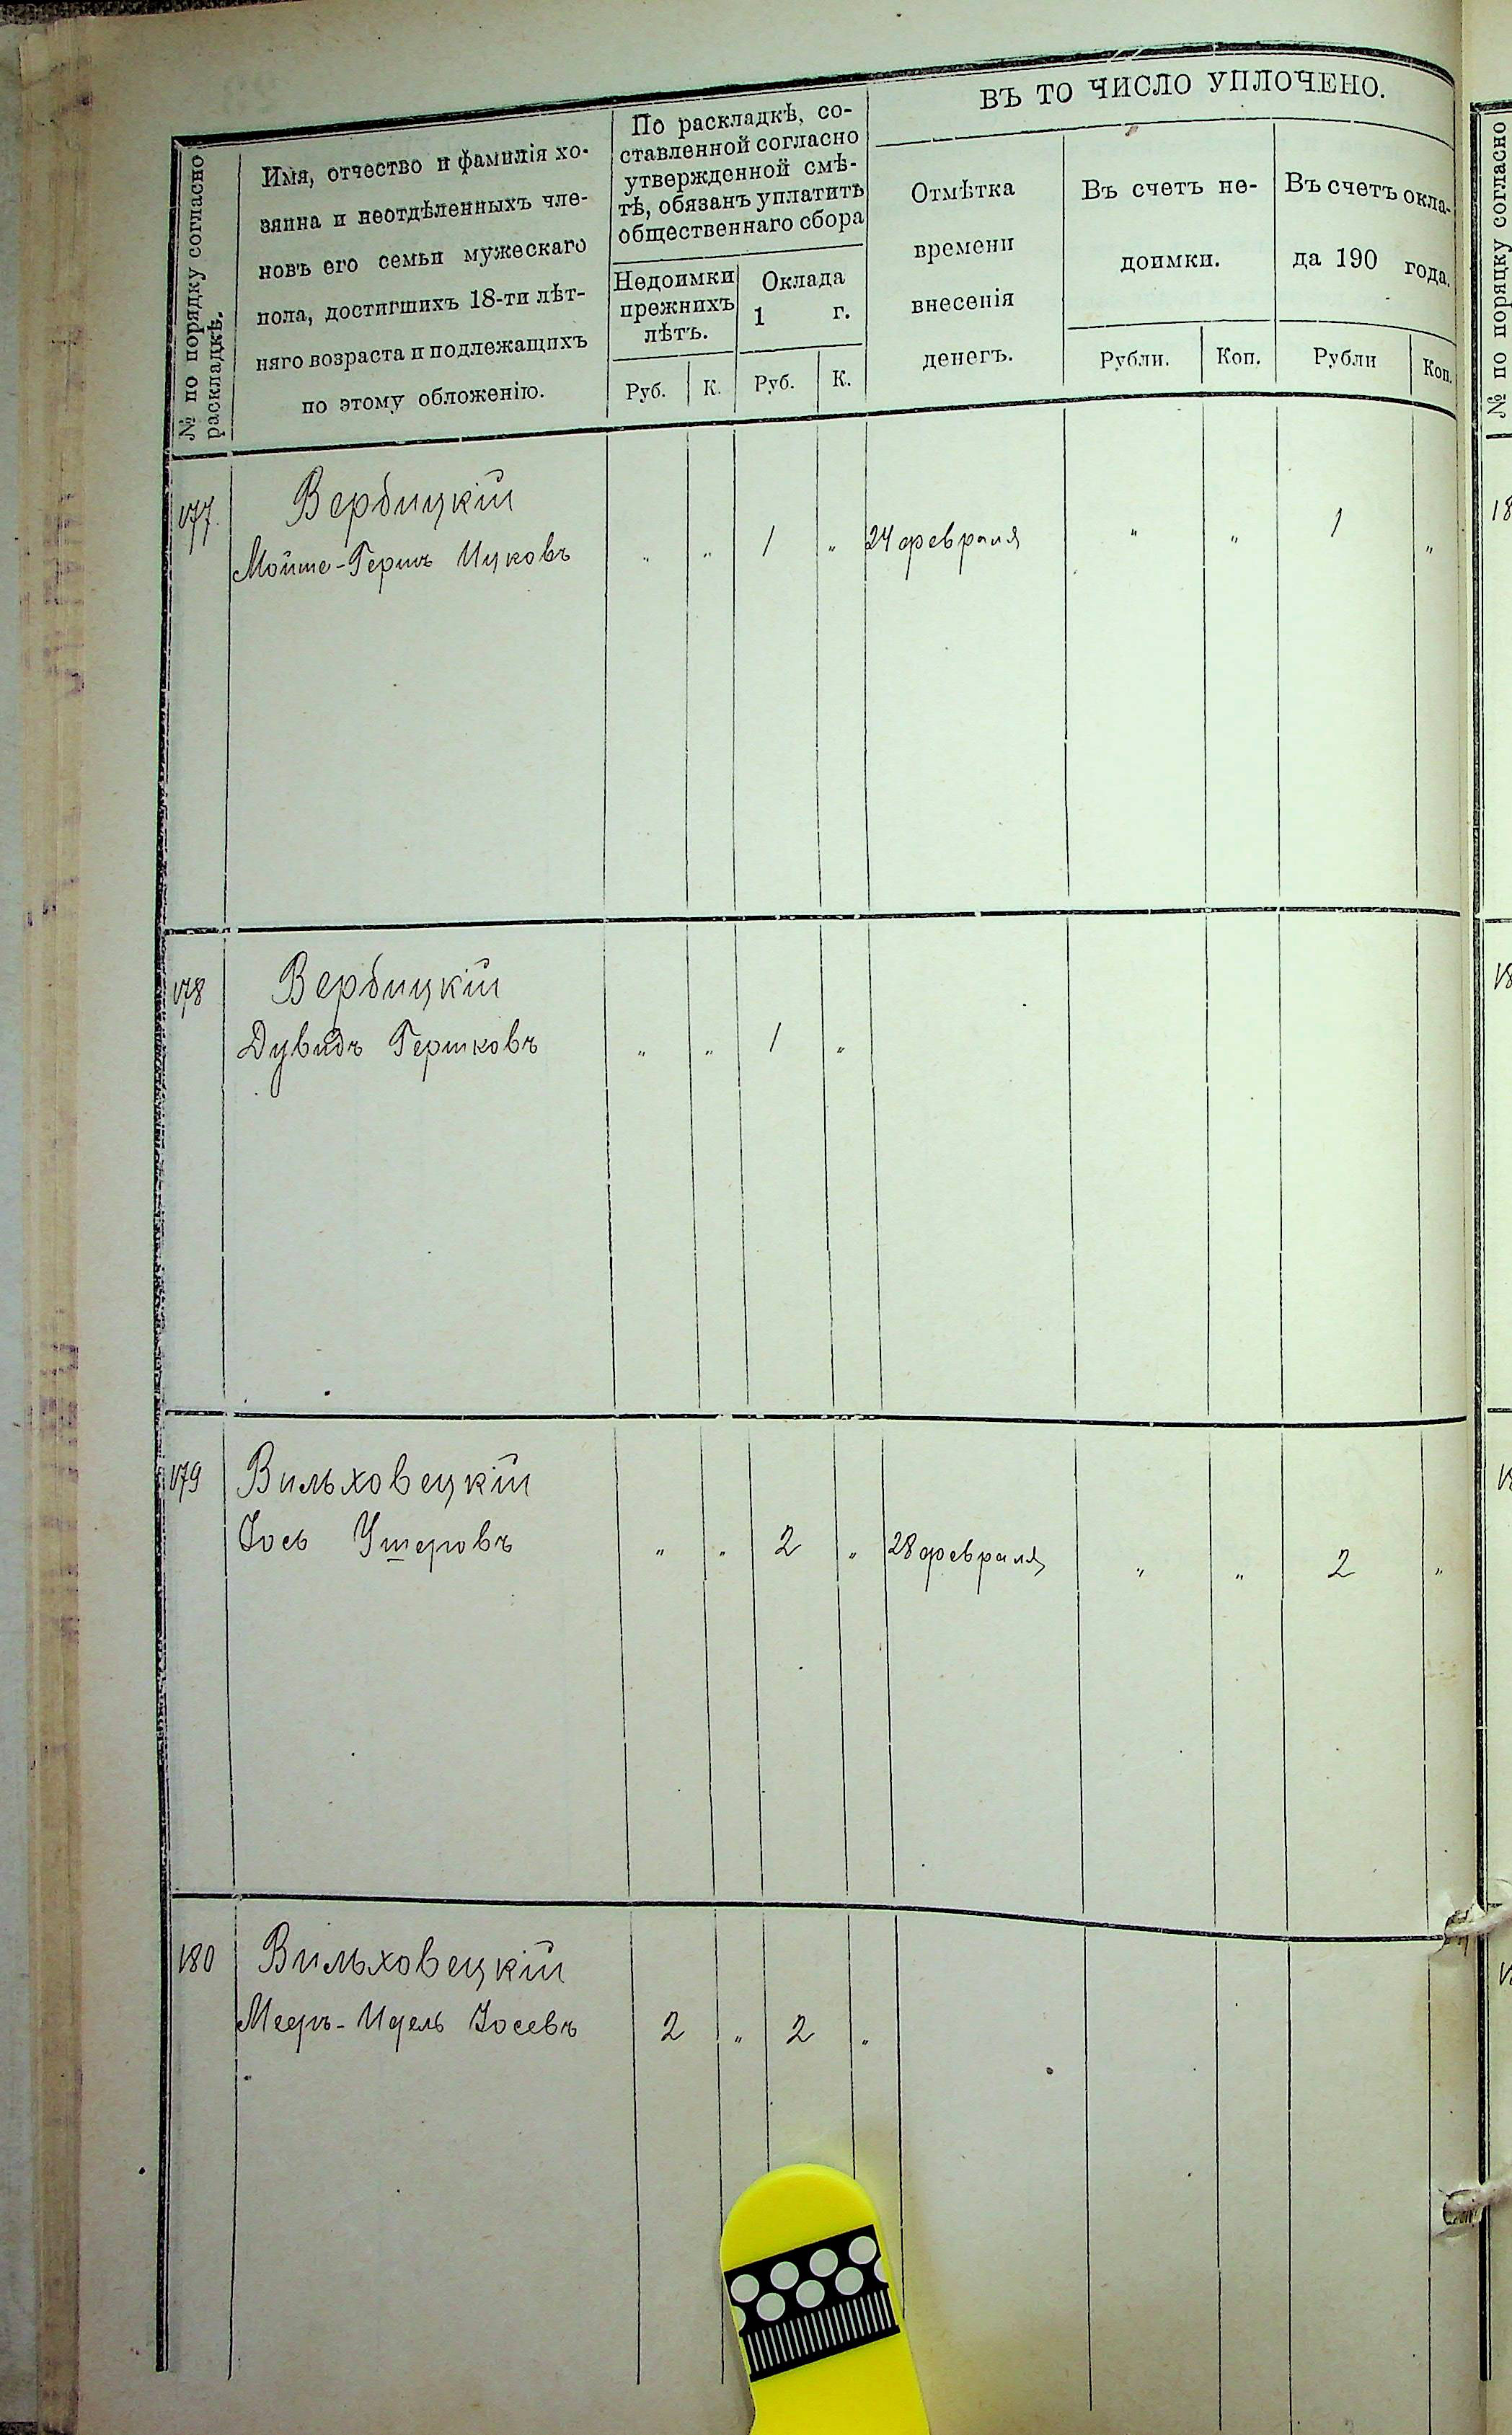 № по порядку согласно
раскладкѣ.
Имя, отчество и фамилія хо-
зяина и неотдѣленныхъ чле-
новъ его семьи мужескаго
пола, достигшихъ 18-ти лѣт-
няго возраста и подлежащихъ
по этому обложенію.
По раскладкѣ, со-
ставленной согласно
утвержденной смѣ-
тѣ, обязанъ уплатить
общественнаго сбора
Недоимки
прежнихъ
лѣтъ.
Оклада
1 г.
Руб. К. Руб. К.
ВЪ ТО ЧИСЛО УПЛОЧЕНО.
Отмѣтка
времени
внесенія
денегъ.
Въ счетъ не-
доимки.
Въ счетъ окла-
да 190 года.
Рубли. Коп. Рубли Коп.
177. Вербицкій
Мойше-Гершъ Ицковъ „ „ 1 „ 24 февраля „ „ 1 „
178 Вербицкій
Дувидъ Гершковъ „ „ 1 „
179 Вильховецкій
Іось Ушеровъ „ „ 2 „ 28 февраля „ „ 2 „
180 Вильховецкій
Мееръ-Идель Іосевъ 2 „ 2 „
№ по порядку согласно